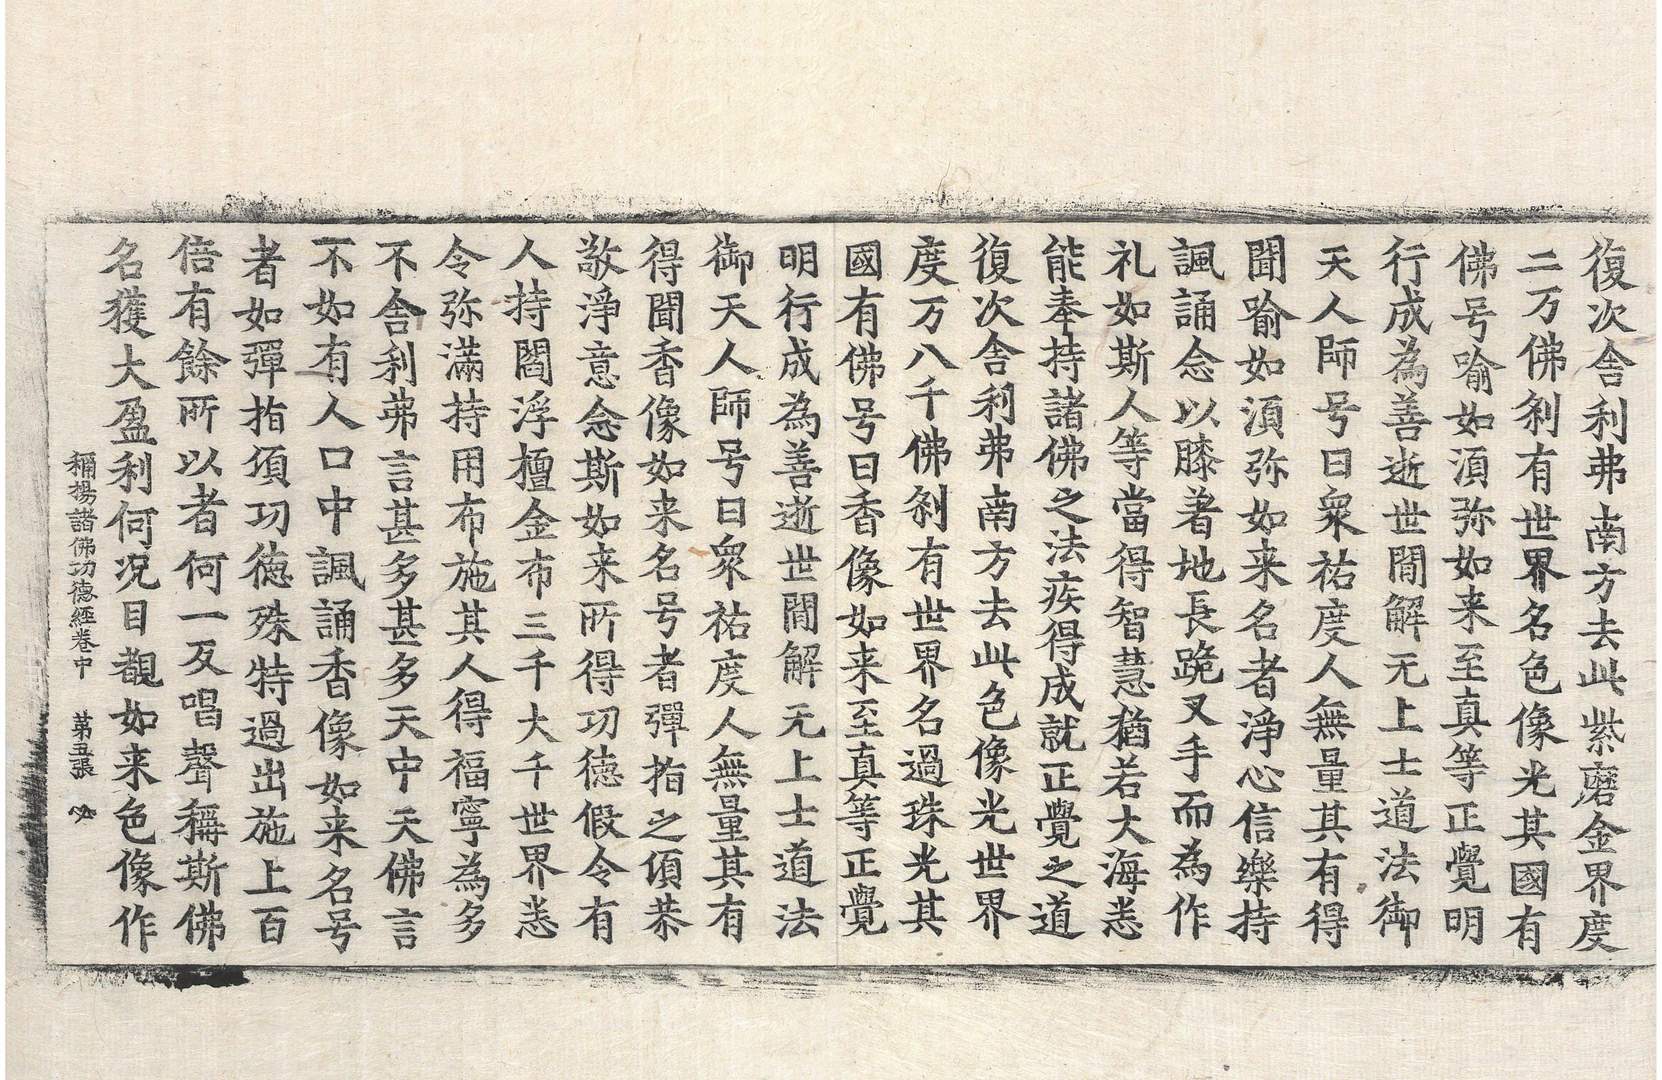 復次舍利弗南方去此紫磨金界度
二万佛刹有世界名色像光其國有
佛号喻如湏弥如来至真等正覺明
行成為善逝世間解无上士道法御
天人師号曰衆祐度人無量其有得
聞喻如湏弥如来名者淨心信樂持
諷誦念以膝著地長跪叉手而為作
礼如斯人等當得智慧猶若大海悉
能奉持諸佛之法疾得成就正覺之道
復次舍利弗南方去此色像光世界
度万八千佛刹有世界名過珠光其
國有佛号曰香像如来至真等正覺
明行成為善逝世間解无上士道法
御天人師号曰衆祐度人無量其有
得聞香像如来名号者彈指之頃恭
敬淨意念斯如来所得功德假令有
人持閻浮檀金布三千大千世界悉
令弥滿持用布施其人得福寧為多
不舍利弗言甚多甚多天中天佛言
不如有人口中諷誦香像如来名号
者如彈指頃功德殊特過出施上百
倍有餘所以者何一反唱聲稱斯佛
名獲大盈利何况目覩如来色像作
稱揚諸佛功德經卷中 第五張